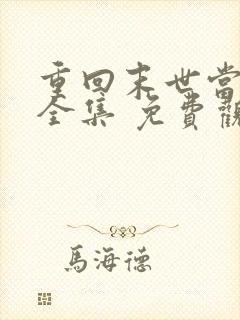 重回末世當
全集 免費觀
馬海德